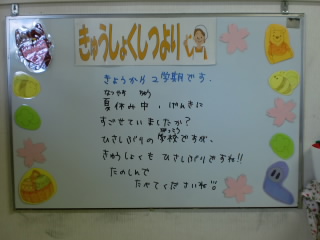 きゅうしょくしつより
きょうから2学期です。
なつやす ちゅう
夏休み中、げんきに
すごせていましたか?
がっこう
ひさしぶりの学校ですが、
きゅうしょくも ひさしぶりですね!!
たのしんで
たべてくださいね!!